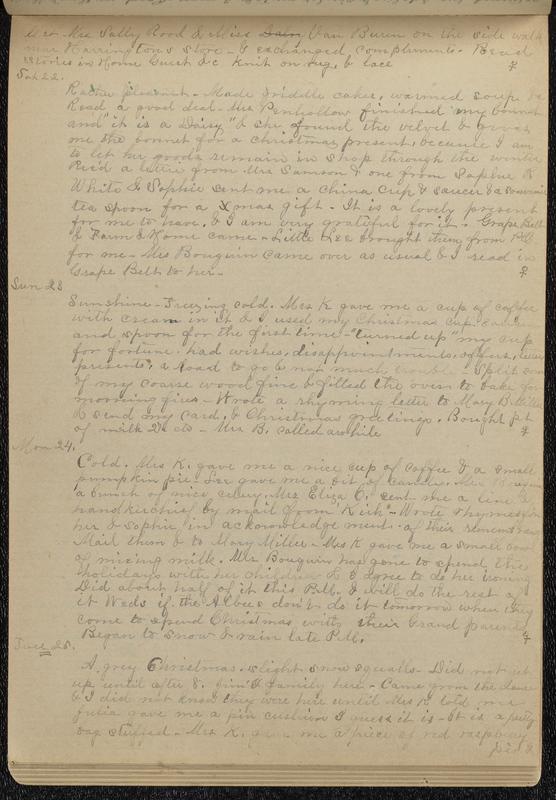 Mrs Sally Rood & Miss Van Buren on the side walk
near Harringtons store - & exchanged compliments. Read
stories in Home Guest &c Knit on rug, & lace
Sat 22.
Rather pleasant - Made griddle cakes, warmed soup &c
Read a good deal - Mrs Penhollow finished my bonnet
and "it is a Daisy" & she found the velvet & gives
me the bonnet for a Christmas present, because I am
to let her goods remain in shop through the winter
Rec'd a letter from Mrs Samson & one from Sophie R
White & Sophie sent me a China Cup & saucer & a souvenir
tea spoon for a Xmas gift - It is a lovely present
for me to have, & I am very grateful for it - Grape Belt
& Farm & Home came - Little Lee brought them from P.O.
for me - Mrs Bouquin came over as usual & I read in
Grape Belt to her -
Sun 23
Sunshine - Freezing cold. Mrs K gave me a cup of coffee
with cream in it & I used my Christmas cup, saucer
and spoon for the first time - "turned up" my cup
for fortune. had wishes, disappointments, offers,
presents, a road to go & not much trouble - Split some
of my coarse wood fine & filled the oven to bake for
morning fires - Wrote a rhyming letter to Mary B Miller
to send my card, & Christmas greetings. Bought pt
of milk 2 cts - Mrs B. called awhile
Mon 24.
Cold. Mrs K. gave me a nice cup of coffee & a small
pumpkin pie. Lee gave me a bit of candies. Mrs Bouquin
a bunch of nice celery. Mrs Eliza C. sent me a line &
handkerchief by mail from "Kirk" - Wrote rhymes for
her & Sophie, in acknowledgement of their
Mail them & to Mary Miller - Mrs K gave me a small
of nice milk. Mrs Bouquin has gone to spend the
holidays with her children & I agree to do her ironing
Did about half of it this P.M. I will do the rest of
it Weds if the Albees don't do it tomorrow when they
come to spend Christmas with their Grand parents
Began to snow & rain late P.M.
Tues 25.
A grey Christmas. slight snow squalls - Did not get
up until after 8. Jim's family here - Came from the dance
& I did not know they were here until Mrs K told me
Julia gave me a pin cushion I guess it is - It is a pretty
bag stuffed - Mrs K. gave me a piece of red raspberry
pie &